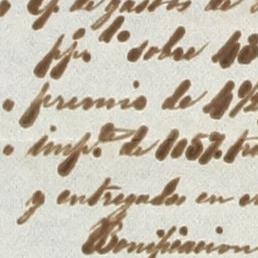 de gastos de
pp.º sobre 18
premio de 4½
imp.te de 1057. tra
y entregados en e
Bonificacion